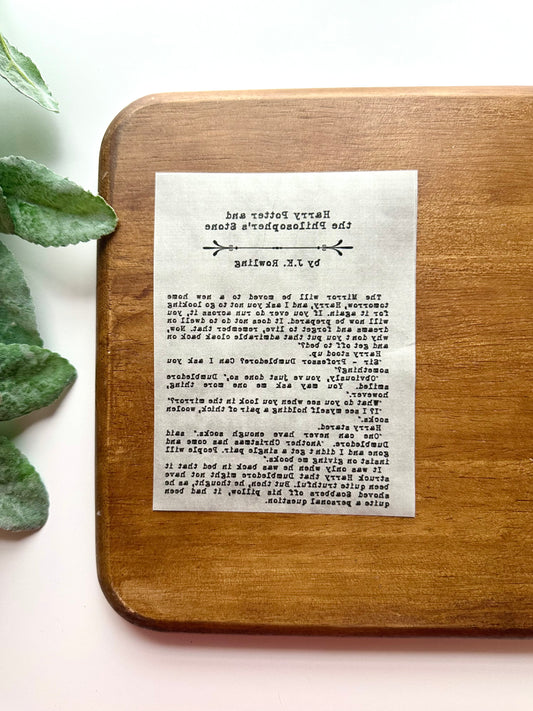 Harry Potter and
the Philosopher's Stone
by J.K. Rowling
The Mirror will be moved to a new home
tomorrow, Harry, and I ask you not to go looking
for it again. If you ever do run across it, you
will now be prepared. It does not do to dwell on
dreams and forget to live, remember that. Now,
why don't you put that admirable cloak back on
and get off to bed?"
Harry stood up.
"Sir - Professor Dumbledore? Can I ask you
something?"
"Obviously, you've just done so," Dumbledore
smiled. "You may ask me one more thing,
however."
"What do you see when you look in the mirror?"
"I? I see myself holding a pair of thick, woolen
socks."
Harry stared.
"One can never have enough socks," said
Dumbledore. "Another Christmas has come and
gone and I didn't get a single pair. People will
insist on giving me books."
It was only when he was back in bed that it
struck Harry that Dumbledore might not have
been quite truthful. But then, he thought, as he
shoved Scabbers off his pillow, it had been
quite a personal question.